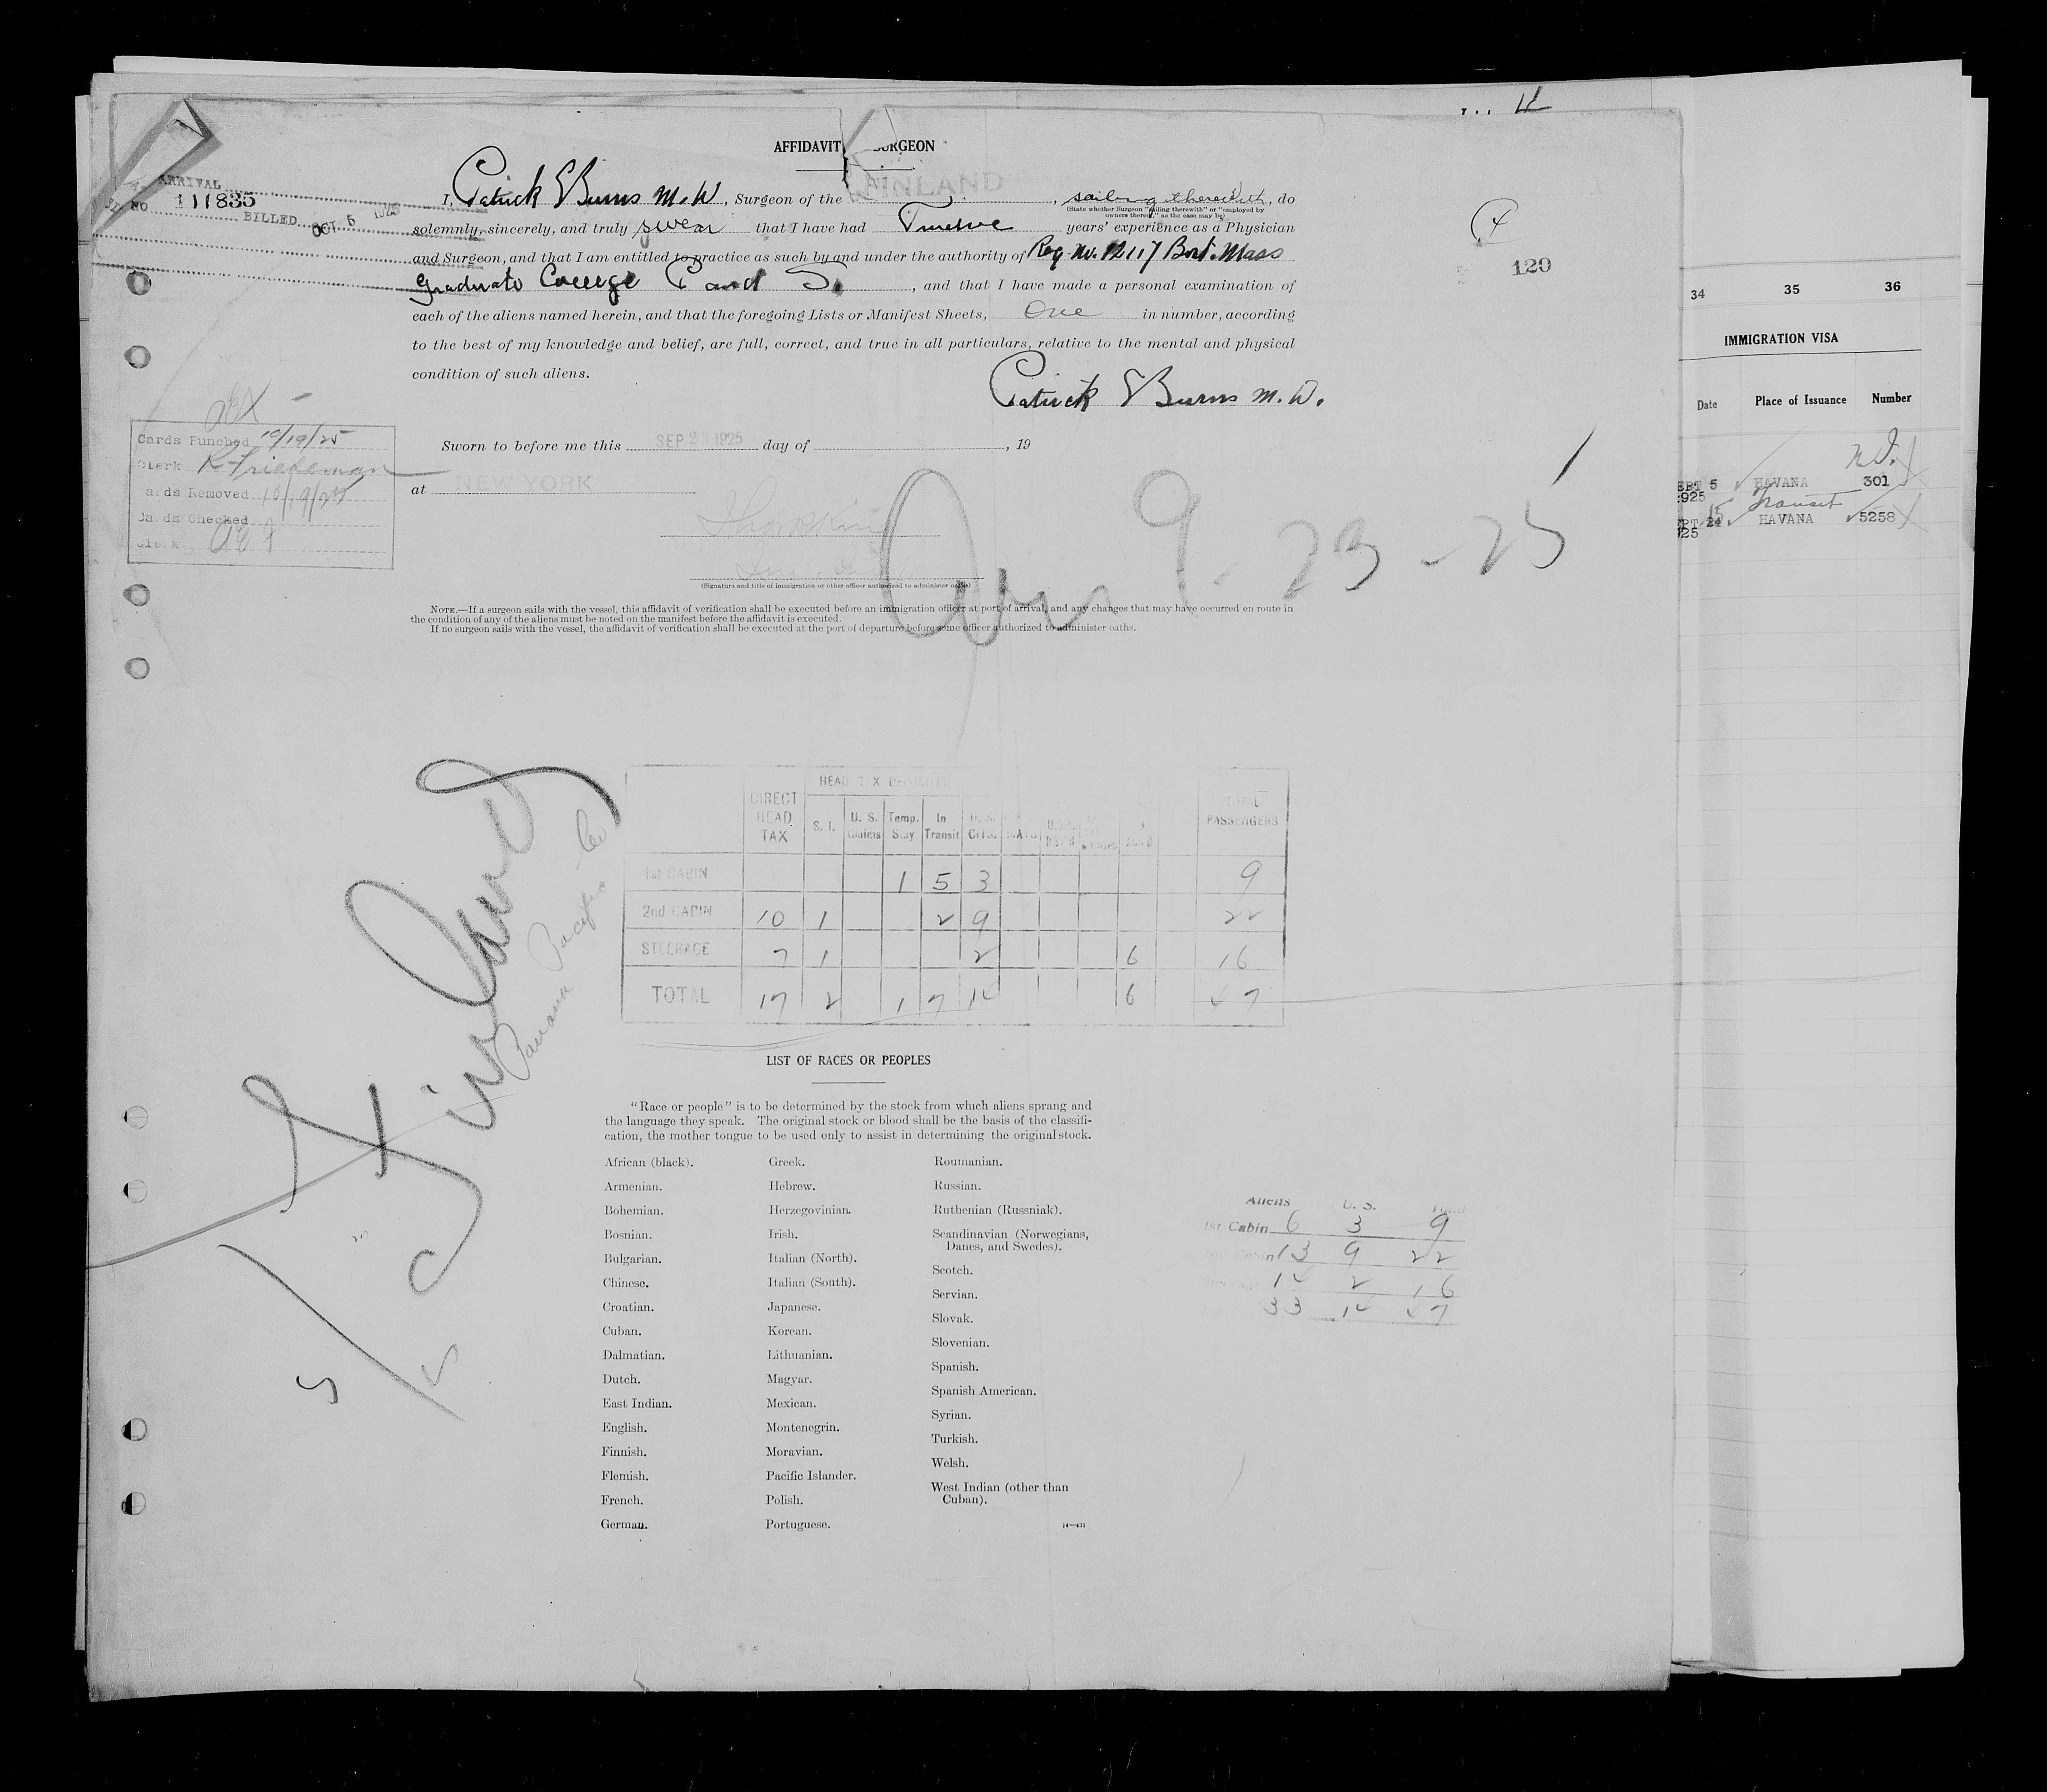 AFFIDAVIT SURGEON
ARRIVAL
NO 111835
BILLED OCT 5 1925
I, Patrick E Burns M.D., Surgeon of the FINLAND, sailing therewith, do
(State whether Surgeon "sailing therewith" or "employed by
owners thereof," as the case may be)
solemnly, sincerely, and truly swear that I have had Twelve years' experience as a Physician
and Surgeon, and that I am entitled to practice as such by and under the authority of Reg. No. 12117 Bost. Mass
Graduate College P and S., and that I have made a personal examination of
each of the aliens named herein, and that the foregoing Lists or Manifest Sheets, One in number, according
to the best of my knowledge and belief, are full, correct, and true in all particulars, relative to the mental and physical
condition of such aliens.
Patrick E Burns M.D.
129
Sworn to before me this SEP 23 1925 day of , 19
at NEW YORK
Cards Punched 10/19/25
Clerk R. Friedeman
ards Removed 10/19/25
Cards Checked
Clerk
(Signature and title of immigration or other officer authorized to administer oaths)
9-23-25
NOTE.—If a surgeon sails with the vessel, this affidavit of verification shall be executed before an immigration officer at port of arrival, and any changes that may have occurred en route in
the condition of any of the aliens must be noted on the manifest before the affidavit is executed.
If no surgeon sails with the vessel, the affidavit of verification shall be executed at the port of departure before some officer authorized to administer oaths.
Finland
Panama Pacific Co
HEAD TAX
DIRECT HEAD TAX S. I. U. S. Claims Temp. Stay In Transit U. S. Citz. TOTAL PASSENGERS
1st CABIN 1 5 3 9
2nd CABIN 10 1 2 9 22
STEERAGE 7 1 2 6 16
TOTAL 17 2 1 7 14 6 47
LIST OF RACES OR PEOPLES
"Race or people" is to be determined by the stock from which aliens sprang and
the language they speak. The original stock or blood shall be the basis of the classifi-
cation, the mother tongue to be used only to assist in determining the original stock.
African (black).
Armenian.
Bohemian.
Bosnian.
Bulgarian.
Chinese.
Croatian.
Cuban.
Dalmatian.
Dutch.
East Indian.
English.
Finnish.
Flemish.
French.
German.
Greek.
Hebrew.
Herzegovinian.
Irish.
Italian (North).
Italian (South).
Japanese.
Korean.
Lithuanian.
Magyar.
Mexican.
Montenegrin.
Moravian.
Pacific Islander.
Polish.
Portuguese.
Roumanian.
Russian.
Ruthenian (Russniak).
Scandinavian (Norwegians,
Danes, and Swedes).
Scotch.
Servian.
Slovak.
Slovenian.
Spanish.
Spanish American.
Syrian.
Turkish.
Welsh.
West Indian (other than
Cuban).
14—431
Aliens U. S. Total
1st Cabin 6 3 9
Cabin 13 9 22
14 2 16
33 14 47
34 35 36
IMMIGRATION VISA
Date Place of Issuance Number
EPT 5 HAVANA 301
1925 Transit
PT 24 HAVANA 5258
925